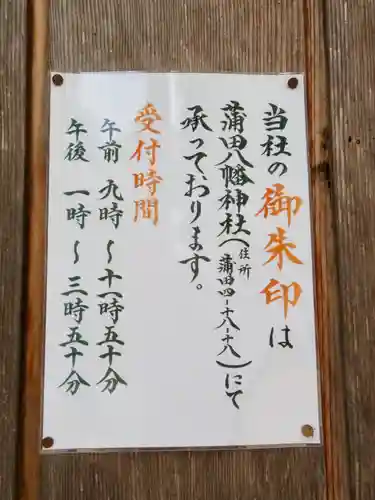 当社の御朱印は
蒲田八幡神社(住所 蒲田四-十八-十八)にて
承っております。
受付時間
午前 九時～十一時五十分
午後 一時～三時五十分